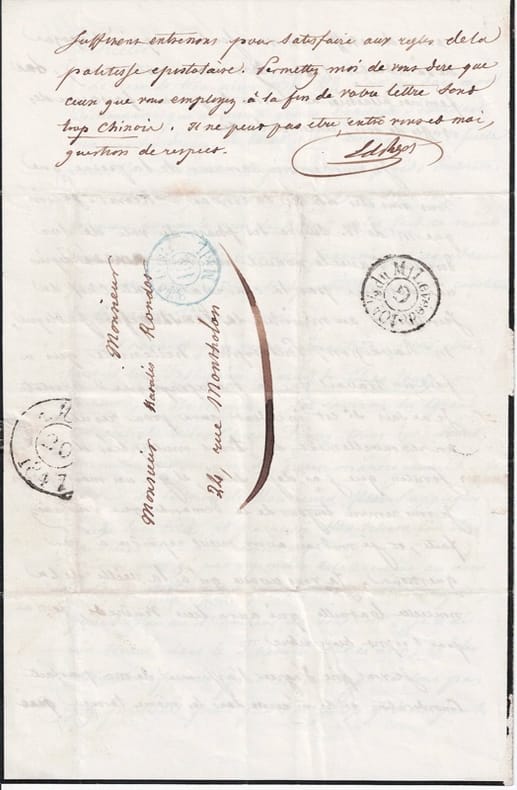 suffiront entre nous pour satisfaire aux regles de la
politesse epistolaire. Permettez moi de vous dire que
ceux que vous employez à la fin de votre lettre sont
trop chinois. Il ne peut pas être entre vous et moi,
question de respect.
Monsieur
Monsieur Rondot
24, rue Montholon